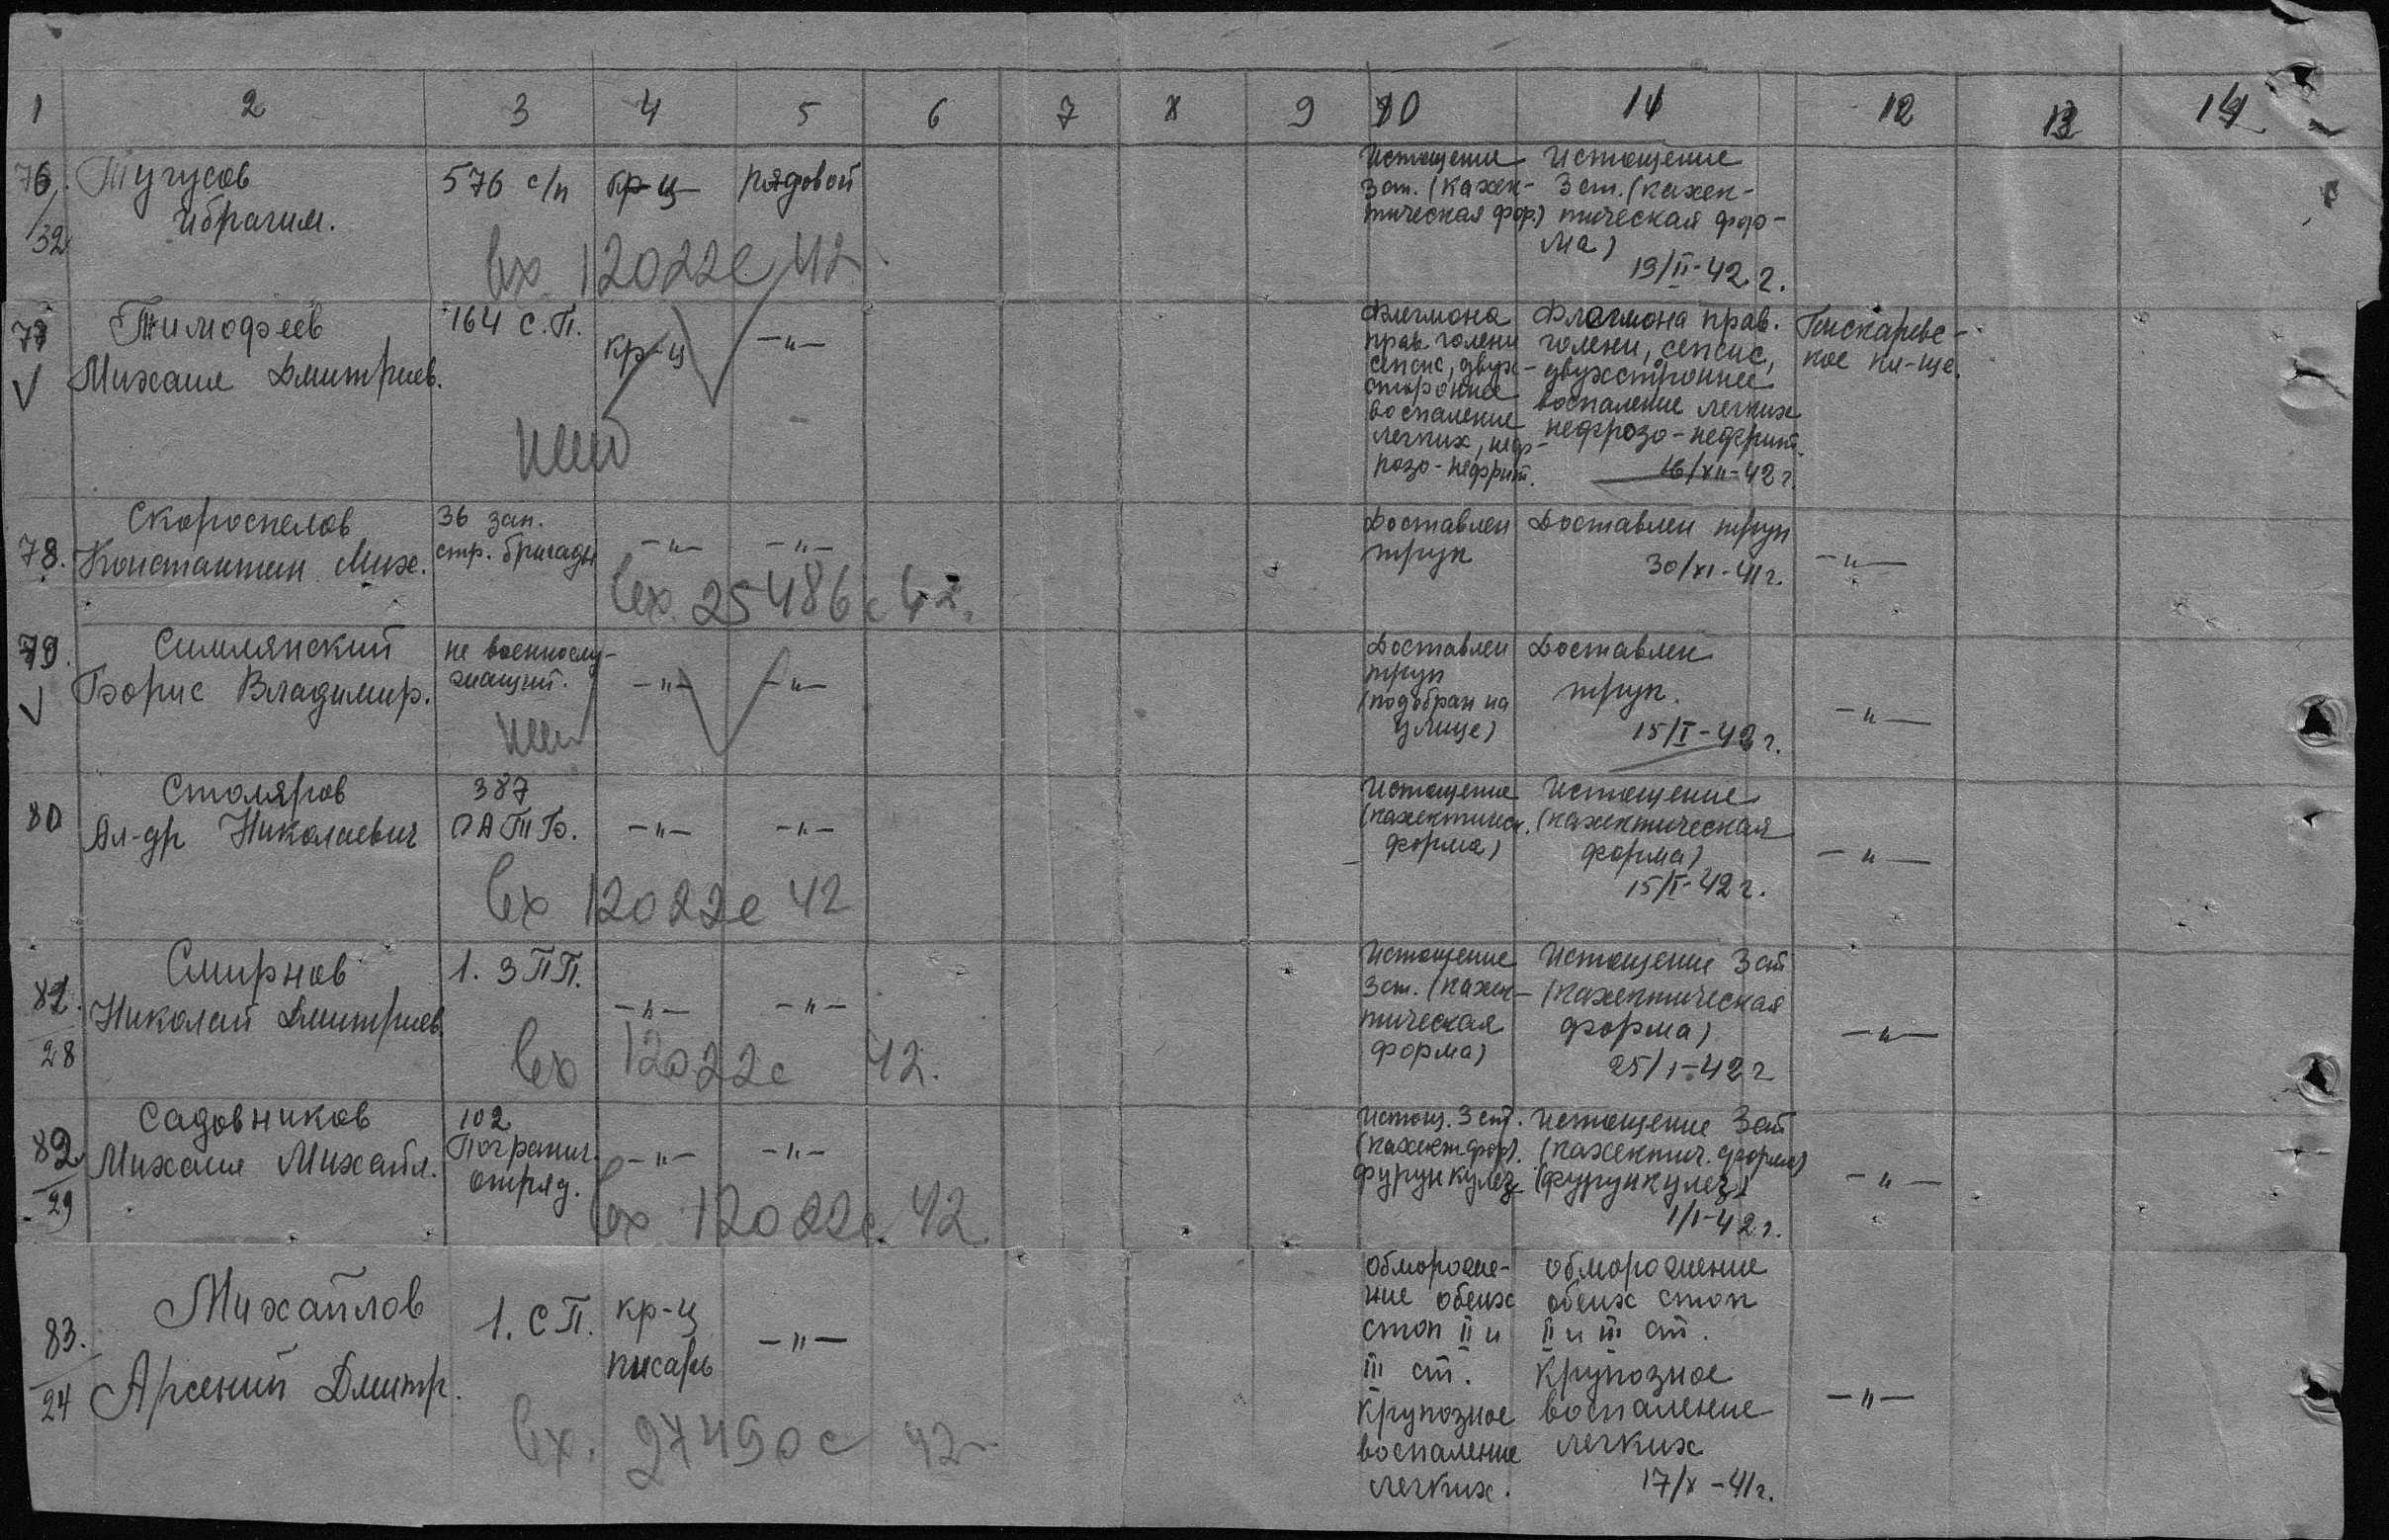 1 2 3 4 5 6 7 8 9 10 11 12 13 14
76. Тугусов 576 с/п кр-ц рядовой Истощение Истощение
3 ст. (кахек- 3 ст. (кахек-
32 Ибрагим. тическая фор.) тическая фор-
ма)
Вх 12022с 42
19/II-42 г.
77 Тимофеев 164 с.п. кр-ц -"- Флегмона Флегмона прав. Пискаревс-
прав. голени голени, сепсис, кое кл-ще.
Михаил Дмитриев. сепсис, двух- двухстороннее
стороннее воспаление легких
воспаление нефрозо-нефрит.
легких, неф-
розо-нефрит. 16/XII-42 г.
78. Скороспелов 36 зап. -"- -"- Доставлен Доставлен труп -"-
Константин Мих. стр. бригады труп 30/XI-41 г.
Вх 25486с 42.
79. Симлянский не военнослу- -"- -"- Доставлен Доставлен -"-
Борис Владимир. жащий. труп труп.
(подобран на
улице) 15/I-42 г.
80 Столяров 387 Истощение Истощение
Ал-др Николаевич ПАТБ. -"- -"- (кахектическ. (кахектическая -"-
форма) форма)
15/I-42 г.
Вх 12022с 42
81. Смирнов 1. ЗПП. -"- -"- Истощение Истощение 3 ст -"-
Николай Дмитриев 3 ст. (кахек- (кахектическая
28 тическая форма)
форма) 25/I-42 г
Вх 12022с 42.
82 Садовников 102 Истощ. 3 ст. Истощение 3 ст
Михаил Михайл. Погранич. -"- -"- (кахект фор). (кахектич. форма) -"-
29 отряд. фурункулез (фурункулез)
1/I-42 г.
Вх 12022с. 42.
83. Михайлов 1. СП. кр-ц -"- Обмороже- Обморожение -"-
ние обеих обеих стоп
24 Арсений Дмитр. писарь стоп II и II и III ст.
III ст. Крупозное
Крупозное воспаление
воспаление легких
легких. 17/X-41 г.
Вх. 27490с 42